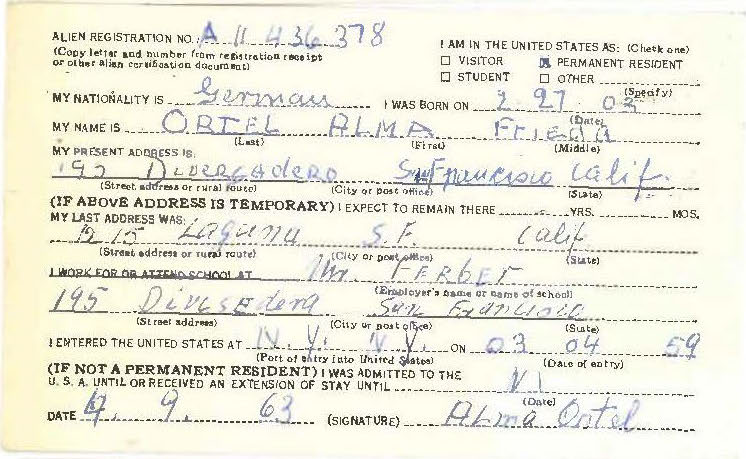 ALIEN REGISTRATION NO. A 11 436 378
(Copy letter and number from registration receipt
or other alien certification document)
I AM IN THE UNITED STATES AS: (Check one)
☐ VISITOR ☒ PERMANENT RESIDENT
☐ STUDENT ☐ OTHER
(Specify)
MY NATIONALITY IS German I WAS BORN ON 2 27 03
(Date)
MY NAME IS ORTEL ALMA Frieda
(Last) (First) (Middle)
MY PRESENT ADDRESS IS:
195 Divergadero San Francisco Calif.
(Street address or rural route) (City or post office) (State)
(IF ABOVE ADDRESS IS TEMPORARY) I EXPECT TO REMAIN THERE YRS. MOS.
MY LAST ADDRESS WAS:
1215 Laguna S.F. Calif
(Street address or rural route) (City or post office) (State)
I WORK FOR OR ATTEND SCHOOL AT FERBER
(Employer's name or name of school)
195 Divisedera San Francisco
(Street address) (City or post office) (State)
I ENTERED THE UNITED STATES AT N.Y. N.Y. ON 03 04 59
(Port of entry into United States) (Date of entry)
(IF NOT A PERMANENT RESIDENT) I WAS ADMITTED TO THE
U. S. A. UNTIL OR RECEIVED AN EXTENSION OF STAY UNTIL
(Date)
DATE 9. 63 (SIGNATURE) Alma Ortel